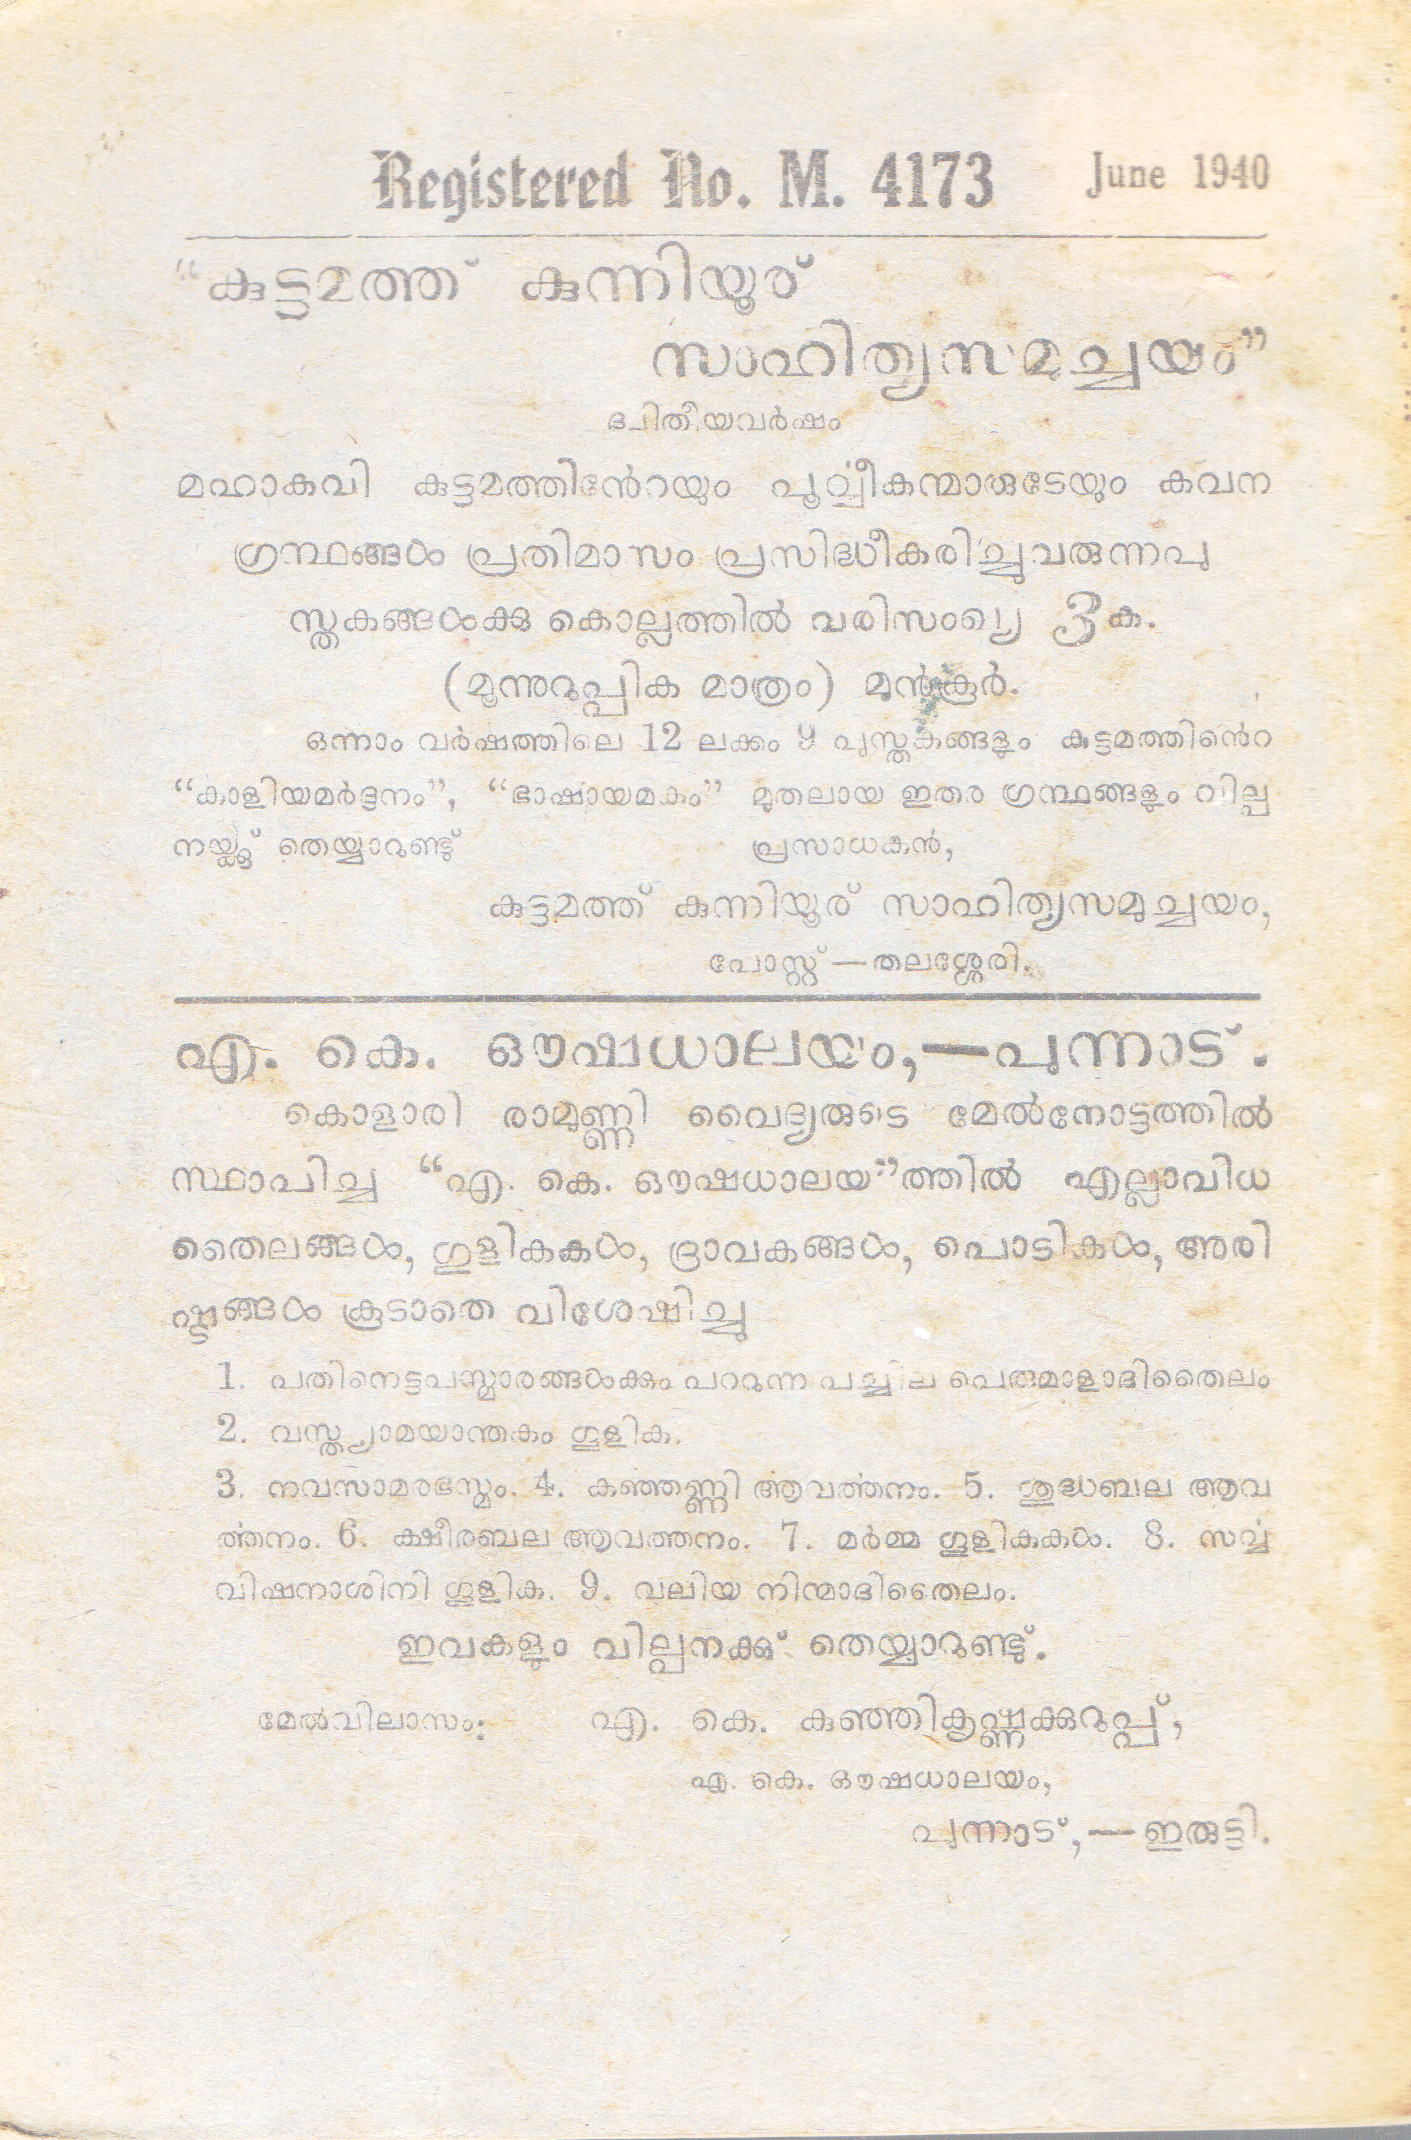 Registered No. M. 4173 June 1940
“കുട്ടമത്ത് കുന്നിയൂര്
സാഹിത്യസമുച്ചയം”
ദ്വിതീയവർഷം
മഹാകവി കുട്ടമത്തിൻേറയും പൂർവ്വീകന്മാരുടേയും കവന
ഗ്രന്ഥങ്ങൾ പ്രതിമാസം പ്രസിദ്ധീകരിച്ചുവരുന്നപു
സ്തകങ്ങൾക്കു കൊല്ലത്തിൽ വരിസംഖ്യ 3 ക.
(മൂന്നുറുപ്പിക മാത്രം) മുൻകൂർ.
ഒന്നാം വർഷത്തിലെ 12 ലക്കം 9 പുസ്തകങ്ങളും കുട്ടമത്തിൻെറ
“കാളിയമർദ്ദനം”, “ഭാഷായമകം” മുതലായ ഇതര ഗ്രന്ഥങ്ങളും വില്പ
നയ്ക്കു് തെയ്യാറുണ്ടു് പ്രസാധകൻ,
കുട്ടമത്ത് കുന്നിയൂര് സാഹിത്യസമുച്ചയം,
പോസ്റ്റ്—തലശ്ശേരി.
എ. കെ. ഔഷധാലയം,—പുന്നാട്.
കൊളാരി രാമുണ്ണി വൈദ്യരുടെ മേൽനോട്ടത്തിൽ
സ്ഥാപിച്ച “എ. കെ. ഔഷധാലയ”ത്തിൽ എല്ലാവിധ
തൈലങ്ങൾ, ഗുളികകൾ, ദ്രാവകങ്ങൾ, പൊടികൾ, അരി
ഷ്ടങ്ങൾ കൂടാതെ വിശേഷിച്ചു
1. പതിനെട്ടപസ്മാരങ്ങൾക്കും പററുന്ന പച്ചില പെരുമാളാദിതൈലം
2. വസ്ത്യാമയാന്തകം ഗുളിക.
3. നവസാമരഭസ്മം. 4. കഞ്ഞണ്ണി ആവർത്തനം. 5. ശുദ്ധബല ആവ
ർത്തനം. 6. ക്ഷീരബല ആവർത്തനം. 7. മർമ്മ ഗുളികകൾ. 8. സർവ്വ
വിഷനാശിനി ഗുളിക. 9. വലിയ നിന്മാദിതൈലം.
ഇവകളും വില്പനക്കു് തെയ്യാറുണ്ടു്.
മേൽവിലാസം: എ. കെ. കുഞ്ഞികൃഷ്ണക്കുറുപ്പ്,
എ. കെ. ഔഷധാലയം,
പുന്നാട്,—ഇരുട്ടി.